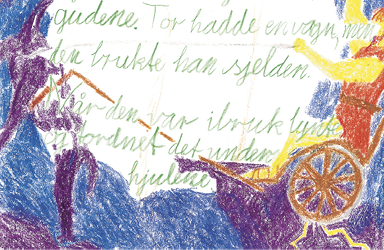 gudene. Tor hadde en vogn, men
den brukte han sjelden.
Når den var i bruk lynte
og tordnet det under
hjulene